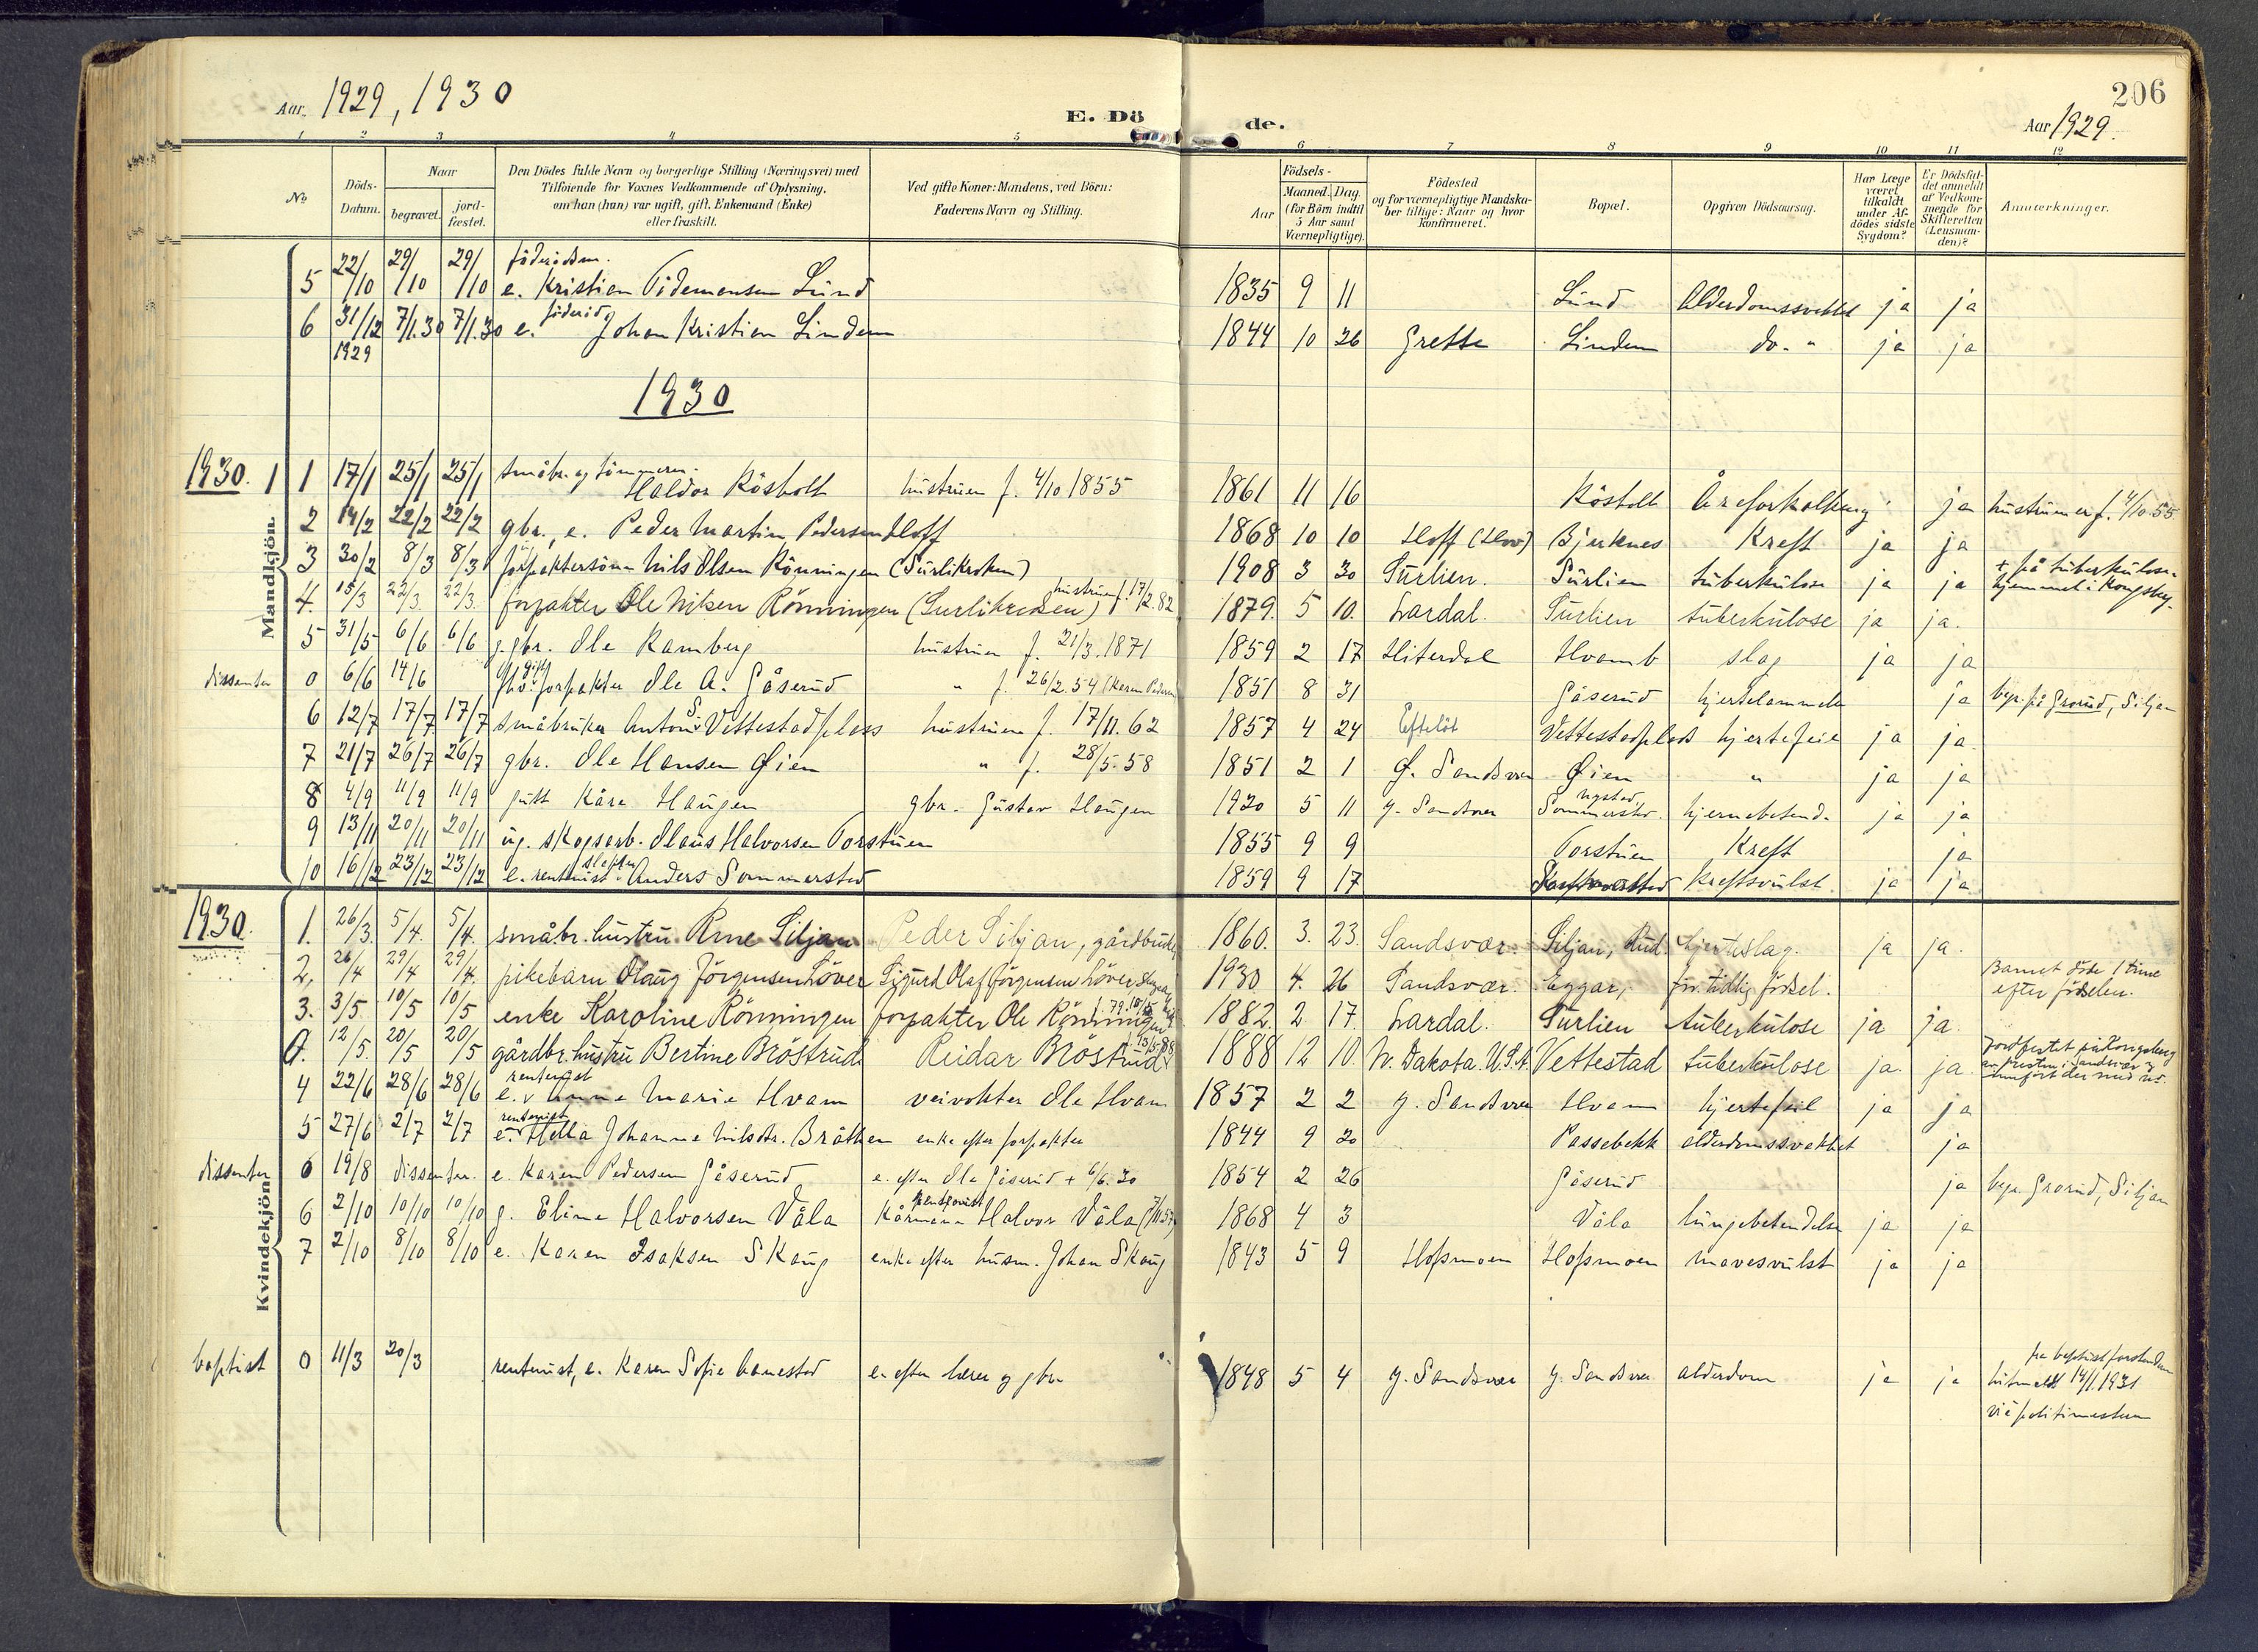 206
Aar 1929, 1930
E. Dö de.
Aar 1929.
1 2 3 4 5 6 7 8 9 10 11 12
No
Döds-Datum.
Naar
begravet. jord-fæstet.
Den Dödes fulde Navn og borgerlige Stilling (Næringsvei) med
Tilföiende for Voxnes Vedkommende af Oplysning.
om han (hun) var ugift, gift, Enkemand (Enke)
eller fraskilt.
Ved gifte Koner: Mandens, ved Börn:
Faderens Navn og Stilling.
Födsels-
Aar Maaned. Dag.
(for Börn indtil
5 Aar samt
Værnepligtige).
Födested
og for værnepligtige Mandska-
ber tillige: Naar og hvor
konfirmeret.
Bopæl.
Opgiven Dödsaarsag.
Har Læge
været
tilkaldt
under Af-
dödes sidste
Sygdom?
Er Dödsfal-
det anmeldt
af Vedkom-
mende for
Skifteretten
(Lensman-
den)?
Anmærkninger.
5 22/10 29/10 29/10 e. Kristian Tidemansen Lund 1835 9 11 Lund Alderdomssvekkel ja ja
6 31/12 1929 7/1.30 7/1.30 e. föderåd Johan Kristian Lindem 1844 10 26 Grette Lindem do. " ja ja
1930
1930.
Mandkjön.
1 17/1 25/1 25/1 småbr. og tömmerm. Haldor Kösholt hustruen f. 4/10 1855 1861 11 16 Kösholt Åreforkalkning ja hustruen er f. 4/10.55
2 14/2 22/2 22/2 gbr., e. Peder Martin Pedersen Hoff 1868 10 10 Hoff (Hov) Bjerknes Kreft ja ja
3 30/2 8/3 8/3 forpaktersönn Nils Olsen Rönningen (Surlikroken) 1908 3 30 Surlien. Surlien tuberkulose ja ja + på tuberkulose-
hjemmet i Kongsbg.
4. 15/3 22/3. 22/3. forpakter Ole Nilsen Rönningen (Surlikroken) hustruen f. 17/2.82 1879. 5 10. Lardal. Surlien tuberkulose ja ja.
5 31/5 6/6 6/6 g. gbr. Ole Ramberg hustruen f. 21/3.1871 1859 2 17 Hiterdal Hvamb slag ja ja
dissenter 0 6/6 14/6 gift forpakter Ole A. Gåserud " f. 26/2.54 (Karen Pedersen) 1851 8 31 Gåserud hjertelammelse ja begr. på Grorud, Siljan
6 12/7 17/7 17/7 småbruker Anton S. Vettestadplass hustruen f. 17/11.62 1857 4 24 Efteløt Vettestadplass hjertefeil ja ja
7 21/7 26/7 26/7 gbr. Ole Hansen Øien " f. 28/5.58 1851 2 1 Ø. Sandsvær Øien " ja ja
8 4/9 11/9 11/9 gutt Kåre Haugen gbr. Gustav Haugen 1920 5 11 Y. Sandsvær Nystad Sommerstad. hjernebetend. ja ja
9 13/11 20/11 20/11 ug. skogsarb. Olaus Halvorsen Torstuen 1855 9 9 Torstuen Kreft ja
10 16/12 23/12 23/12 e. rentenist Anders Sommerstad 1859 9 17 Kreftsvulst. ja ja
1930.
Kvindekjön.
1. 26/3. 5/4. 5/4. småbr. hustru Ane Siljan Peder Siljan, gårdbruker 1860. 3. 23. Sandsvær. Siljan, hjerteslag. ja ja.
2, 26/4 29/4 29/4. pikebarn Olaug Jörgensen Löver Sigurd Olaf Jörgensen Löver 1930 4. 26 Sandsvær. Eggar, for tidlig födsel. Barnet döde 1 time
efter födselen.
3. 3/5. 10/5 10/5 enke Karoline Rönningen forpakter Ole Rönningen 1882. 2 17. Lardal. Surlien tuberkulose ja ja.
0. 12/5. 20/5 20/5 gårdbr. hustru Bertine Bröstrud Reidar Bröstrud 1888 12 10. N. Dakota. U.S.A. Vettestad tuberkulose ja. ja Jordfestet på Kongsberg
4 22/6 28/6 28/6 rentenist e. v. Anne Marie Hvam veivokter Ole Hvam 1857 2 2 Y. Sandsvær Hvam hjertefeil ja ja
5 27/6 2/7 2/7 rentenist e. Hella Johanne Nilsdtr. Bråthen enke efter forpakter 1844 9 20 Passebekk alderdomssvakhet ja
dissenter 0 19/8 dissenter. e. Karen Pedersen Gåserud e. efter Ole Gåserud + 6/6.30 1854 2 26 Gåserud ja begr. Grorud, Siljan
6 2/10 10/10 10/10 g. Eline Halvorsen Våla Kårmann Halvor Våla 1868 4 3 Våla lungebetendelse ja ja
7 2/10 8/10 8/10 e. Karen Isaksen Skaug enke efter husm. Johan Skaug 1843 5 9 Hossmoen Hossmoen mavesvulst ja ja
baptist 0 11/3 20/3 rentenist, e. Karen Sofie e. efter lærer og gbr. 1848 5 4 Y. Sandsvær Y. Sandsvær alderdom ja ja fra baptistforstander
14/1.1931
via politimesteren